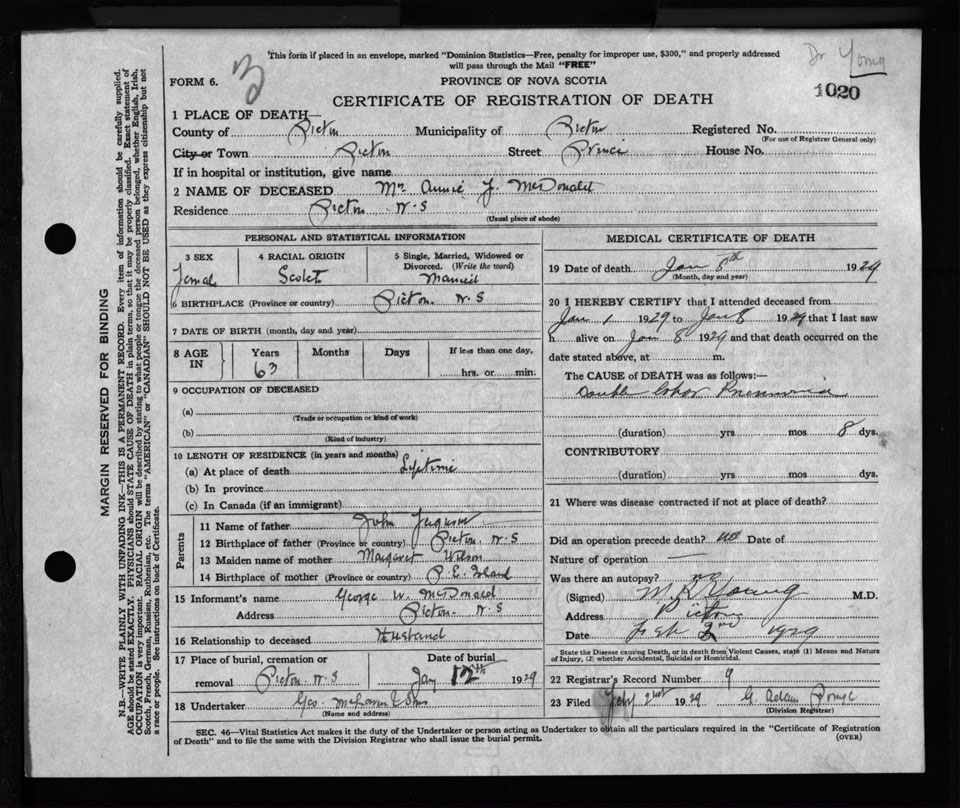 This form if placed in an envelope, marked "Dominion Statistics—Free, penalty for improper use, $300," and properly addressed
will pass through the Mail "FREE"
Dr Young
FORM 6.
3
PROVINCE OF NOVA SCOTIA
1020
CERTIFICATE OF REGISTRATION OF DEATH
1 PLACE OF DEATH—
County of Pictou Municipality of Pictou Registered No.
(For use of Registrar General only)
City or Town Pictou Street House No.
If in hospital or institution, give name
2 NAME OF DECEASED Mrs Annie J. McDonald
Residence Pictou N.S
(Usual place of abode)
PERSONAL AND STATISTICAL INFORMATION
3 SEX
Female
4 RACIAL ORIGIN
Scotch
5 Single, Married, Widowed or
Divorced. (Write the word)
Married
6 BIRTHPLACE (Province or country) Pictou. N.S
7 DATE OF BIRTH (month, day and year)
8 AGE IN
Years
63
Months
Days
If less than one day,
hrs. or min.
9 OCCUPATION OF DECEASED
(a)
(Trade or occupation or kind of work)
(b)
(Kind of industry)
10 LENGTH OF RESIDENCE (in years and months)
(a) At place of death Lifetime
(b) In province
(c) In Canada (if an immigrant)
Parents
11 Name of father John Ferguson
12 Birthplace of father (Province or country) Pictou. N.S
13 Maiden name of mother Margaret Wilson
14 Birthplace of mother (Province or country) P. E. Island
15 Informant's name George W. McDonald
Address Pictou. N.S
16 Relationship to deceased Husband
17 Place of burial, cremation or
removal Pictou N.S
Date of burial
Jany 12th 1929
18 Undertaker Geo.
(Name and address)
MEDICAL CERTIFICATE OF DEATH
19 Date of death Jan 8th 1929
(Month, day and year)
20 I HEREBY CERTIFY that I attended deceased from
Jan 1 1929 to Jan 8 1929 that I last saw
h alive on Jan 8 1929 and that death occurred on the
date stated above, at m.
The CAUSE of DEATH was as follows:—
Double Lobar Pneumonia
(duration) yrs mos 8 dys.
CONTRIBUTORY
(duration) yrs mos dys.
21 Where was disease contracted if not at place of death?
Did an operation precede death? no Date of
Nature of operation —
Was there an autopsy? no
(Signed) Young M.D.
Address Pictou
Date Feb 2nd 1929
State the Disease causing Death, or in death from Violent Causes, state (1) Means and Nature
of Injury, (2) whether Accidental, Suicidal or Homicidal.
22 Registrar's Record Number 9
23 Filed Feby 2nd 1929 G. Adam
(Division Registrar)
SEC. 46—Vital Statistics Act makes it the duty of the Undertaker or person acting as Undertaker to obtain all the particulars required in the "Certificate of Registration
of Death" and to file the same with the Division Registrar who shall issue the burial permit.
(OVER)
MARGIN RESERVED FOR BINDING
N.B.—WRITE PLAINLY WITH UNFADING INK—THIS IS A PERMANENT RECORD. Every item of information should be carefully supplied.
AGE should be stated EXACTLY. PHYSICIANS should STATE CAUSE OF DEATH in plain terms, so that it may be properly classified. Exact statement of
OCCUPATION is very important. RACIAL ORIGIN will be described by stating to what people or tongue the deceased person belonged, whether English, Irish,
Scotch, French, German, Russian, Ruthenian, etc. The terms "AMERICAN" or "CANADIAN" SHOULD NOT BE USED as they express citizenship but not
a race or people. See instructions on back of Certificate.